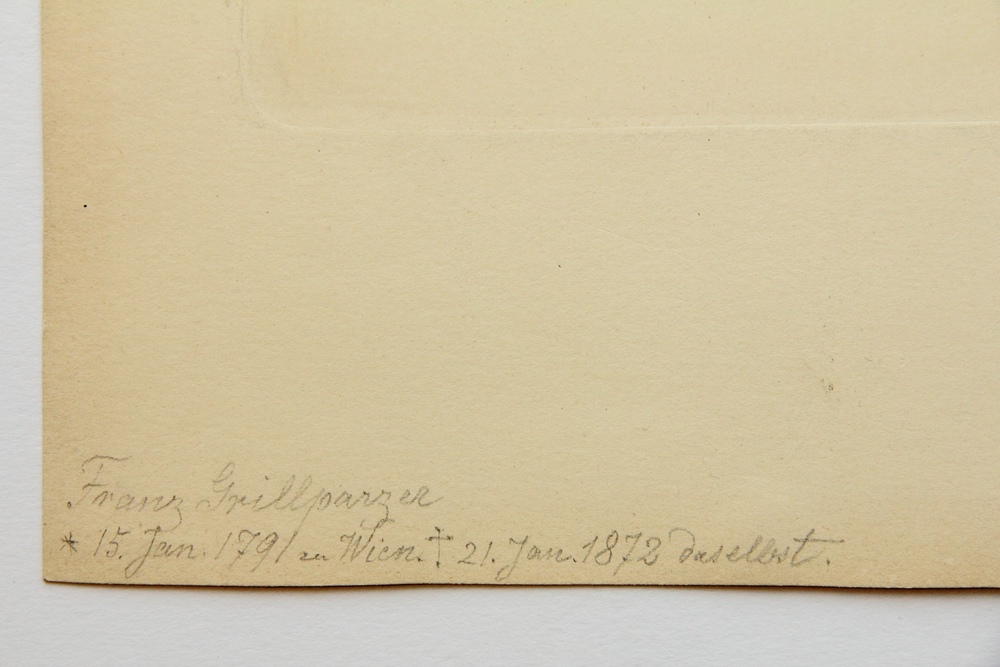 Franz Grillparzer
* 15. Jan. 1791 zu Wien. † 21. Jan. 1872 daselbst.